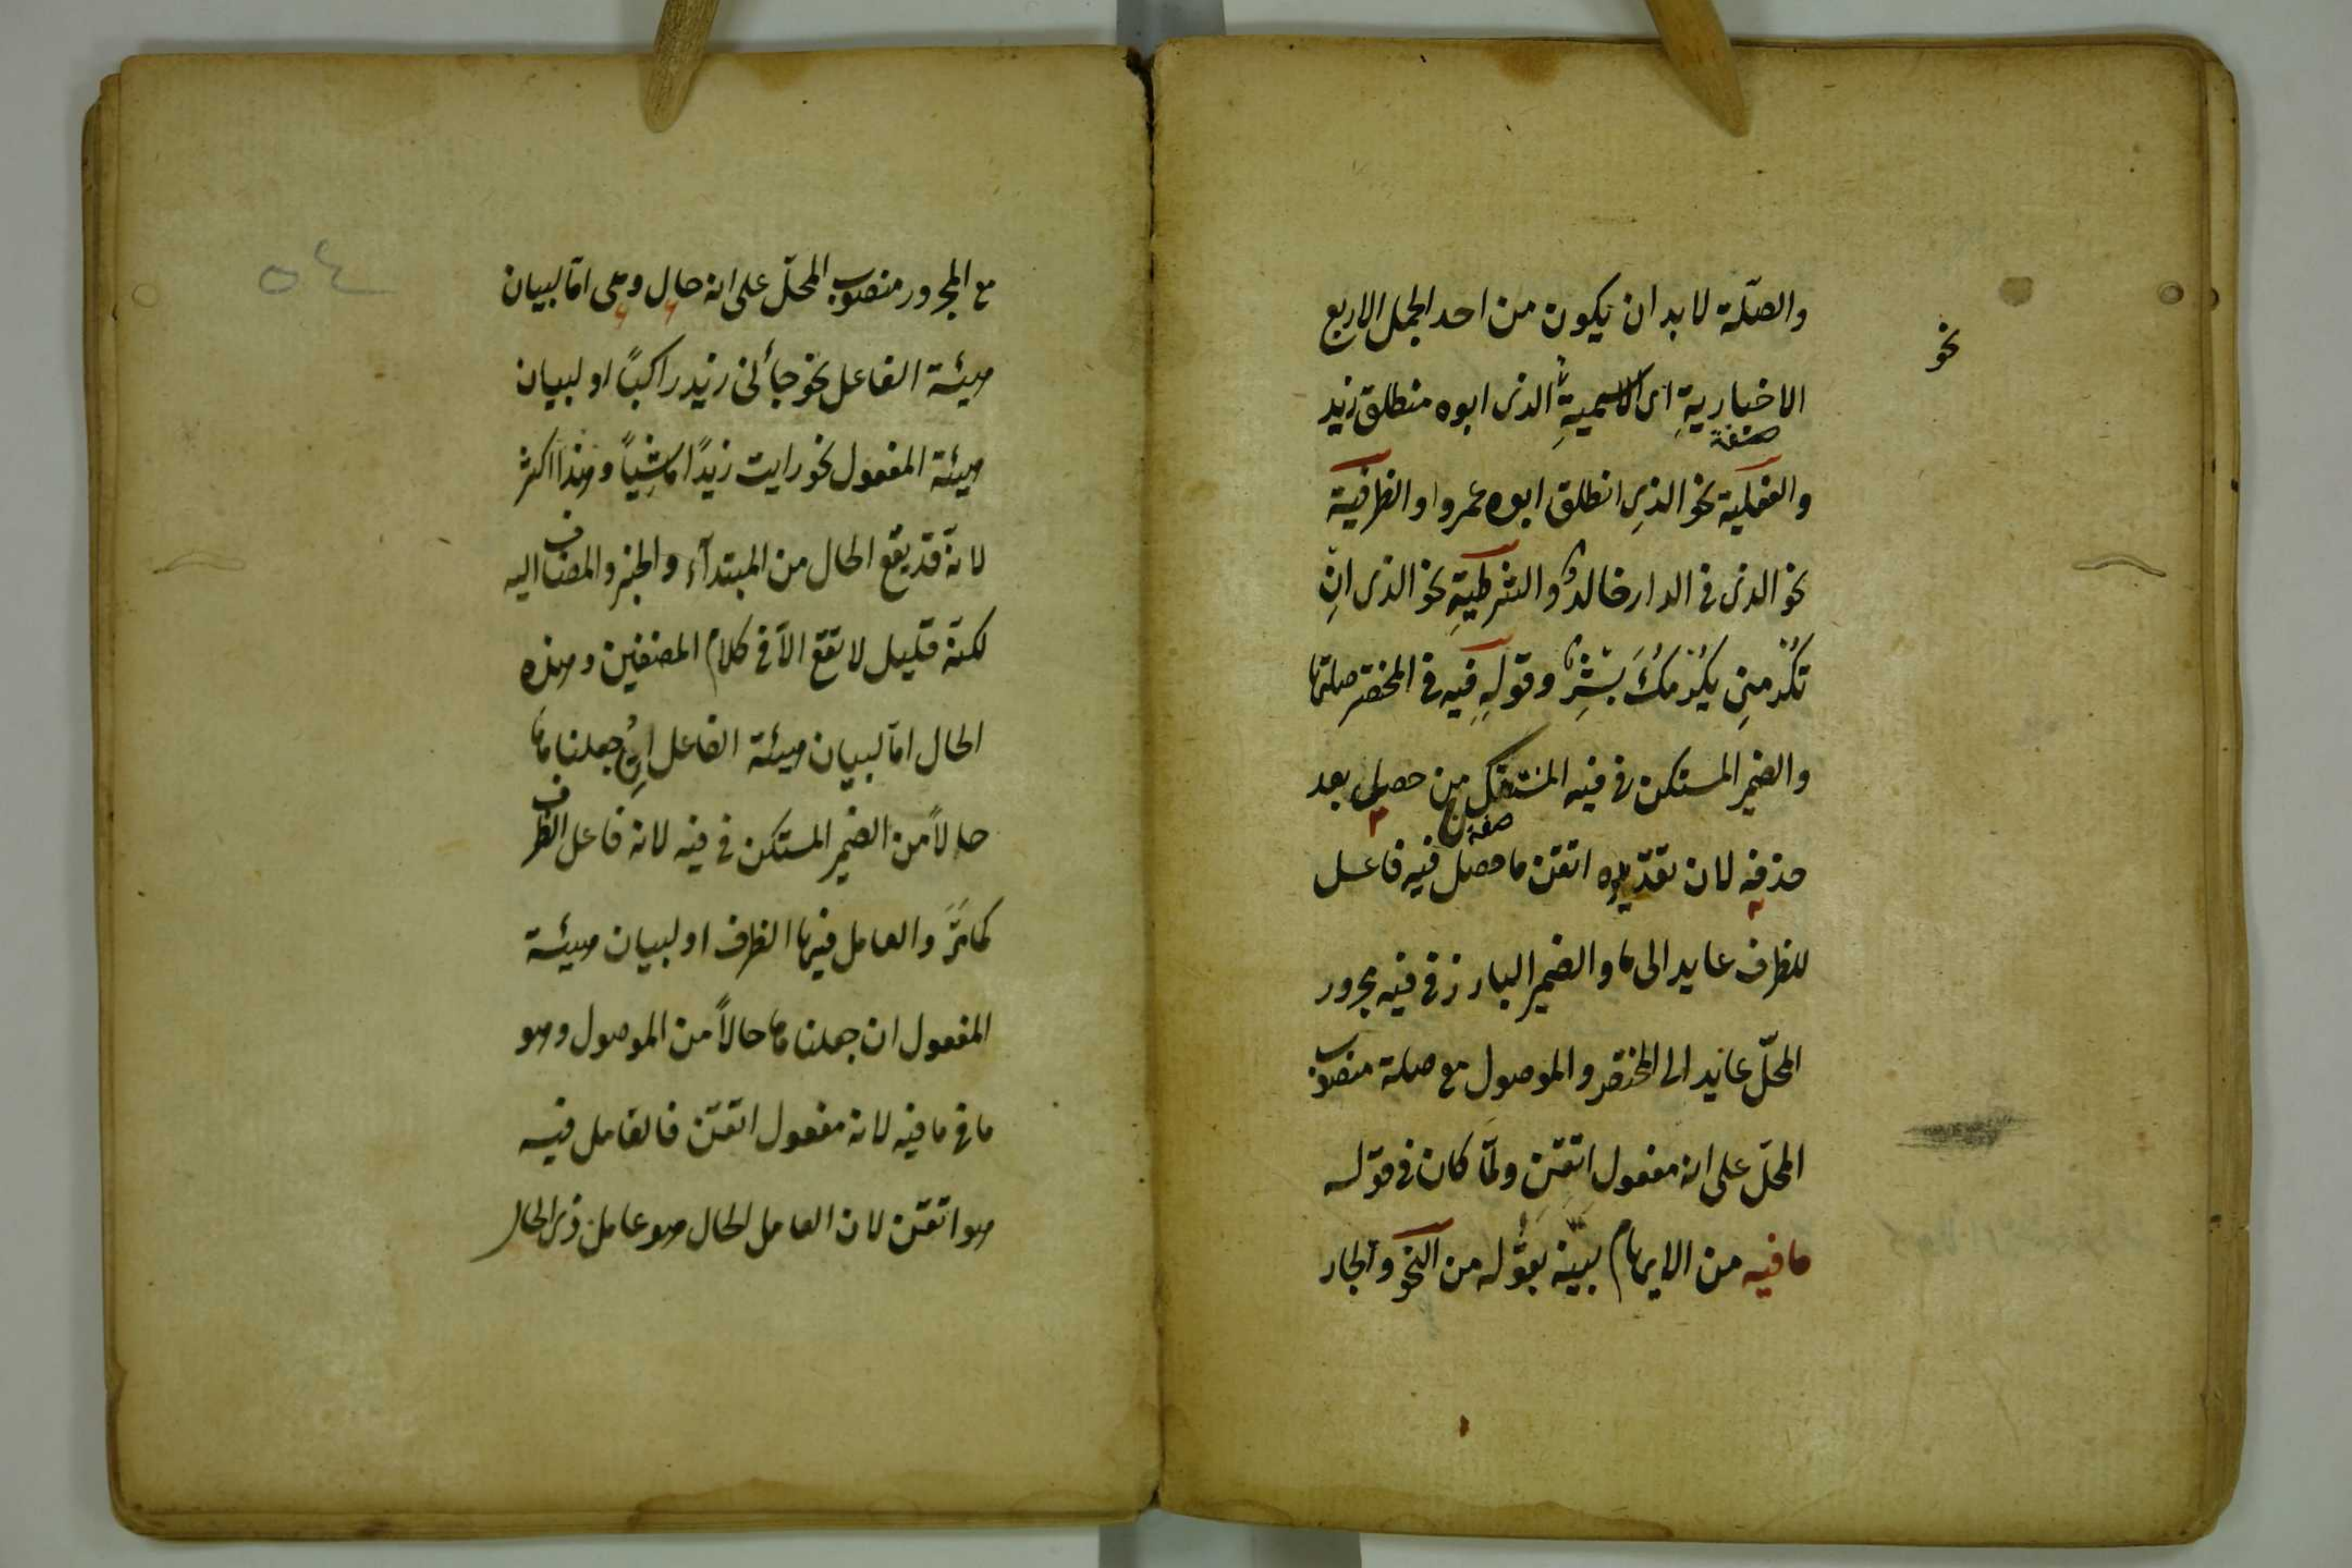 والصلة لا بد ان يكون من احد الجمل الاربع
نحو
الاخبارية اى الاسمية الذى ابوه منطلق زيد
صفة
والفعلية نحو الذى انطلق ابوه عمرو او الظرفية
نحو الذى فى الدار خالدٌ والشرطيةِ نحو الذى انِ
تكرمنِى يكرمكَ بشرٌ وقوله فيه فى المختصر صلتها
والضمير المستكن فى فيه المنتقل من حصل بعد
صفة
حذفه لان تقديره اتقن ما حصل فيه فاعل
للظرف عايد الى ما والضمير البارز فى فيه مجرور
المحلّ عايد الى المختصر والموصول مع صلة منصوب
المحلّ على انه مفعول اتقن ولمّا كان فى قوله
ما فيه من الابهام بيّنه بقوله من النحو والجار
٥٤
مع المجرور منصوب المحلّ على انه حال وهى امّا لبيان
هيئة الفاعل نحو جأنى زيد راكبًا او لبيان
هيئة المفعول نحو رايت زيدًا ماشيًا وهذا اكثر
لانه قد يقع الحال من المبتدآء والخبر والمضاف اليه
لكنّه قليل لا تقع الّا فى كلام المصنفين وهذه
الحال امّا لبيان هيئة الفاعل ان جعلناها
حالًا من الضمير المستكن فى فيه لانه فاعل الظرف
كما مَرَّ والعامل فيها الظرف او لبيان هيئة
المفعول ان جعلناها حالًا من الموصول وهو
ما فى ما فيه لانه مفعول اتقن فالعامل فيه
هو اتقن لان العامل الحال هو عامل ذى الحال